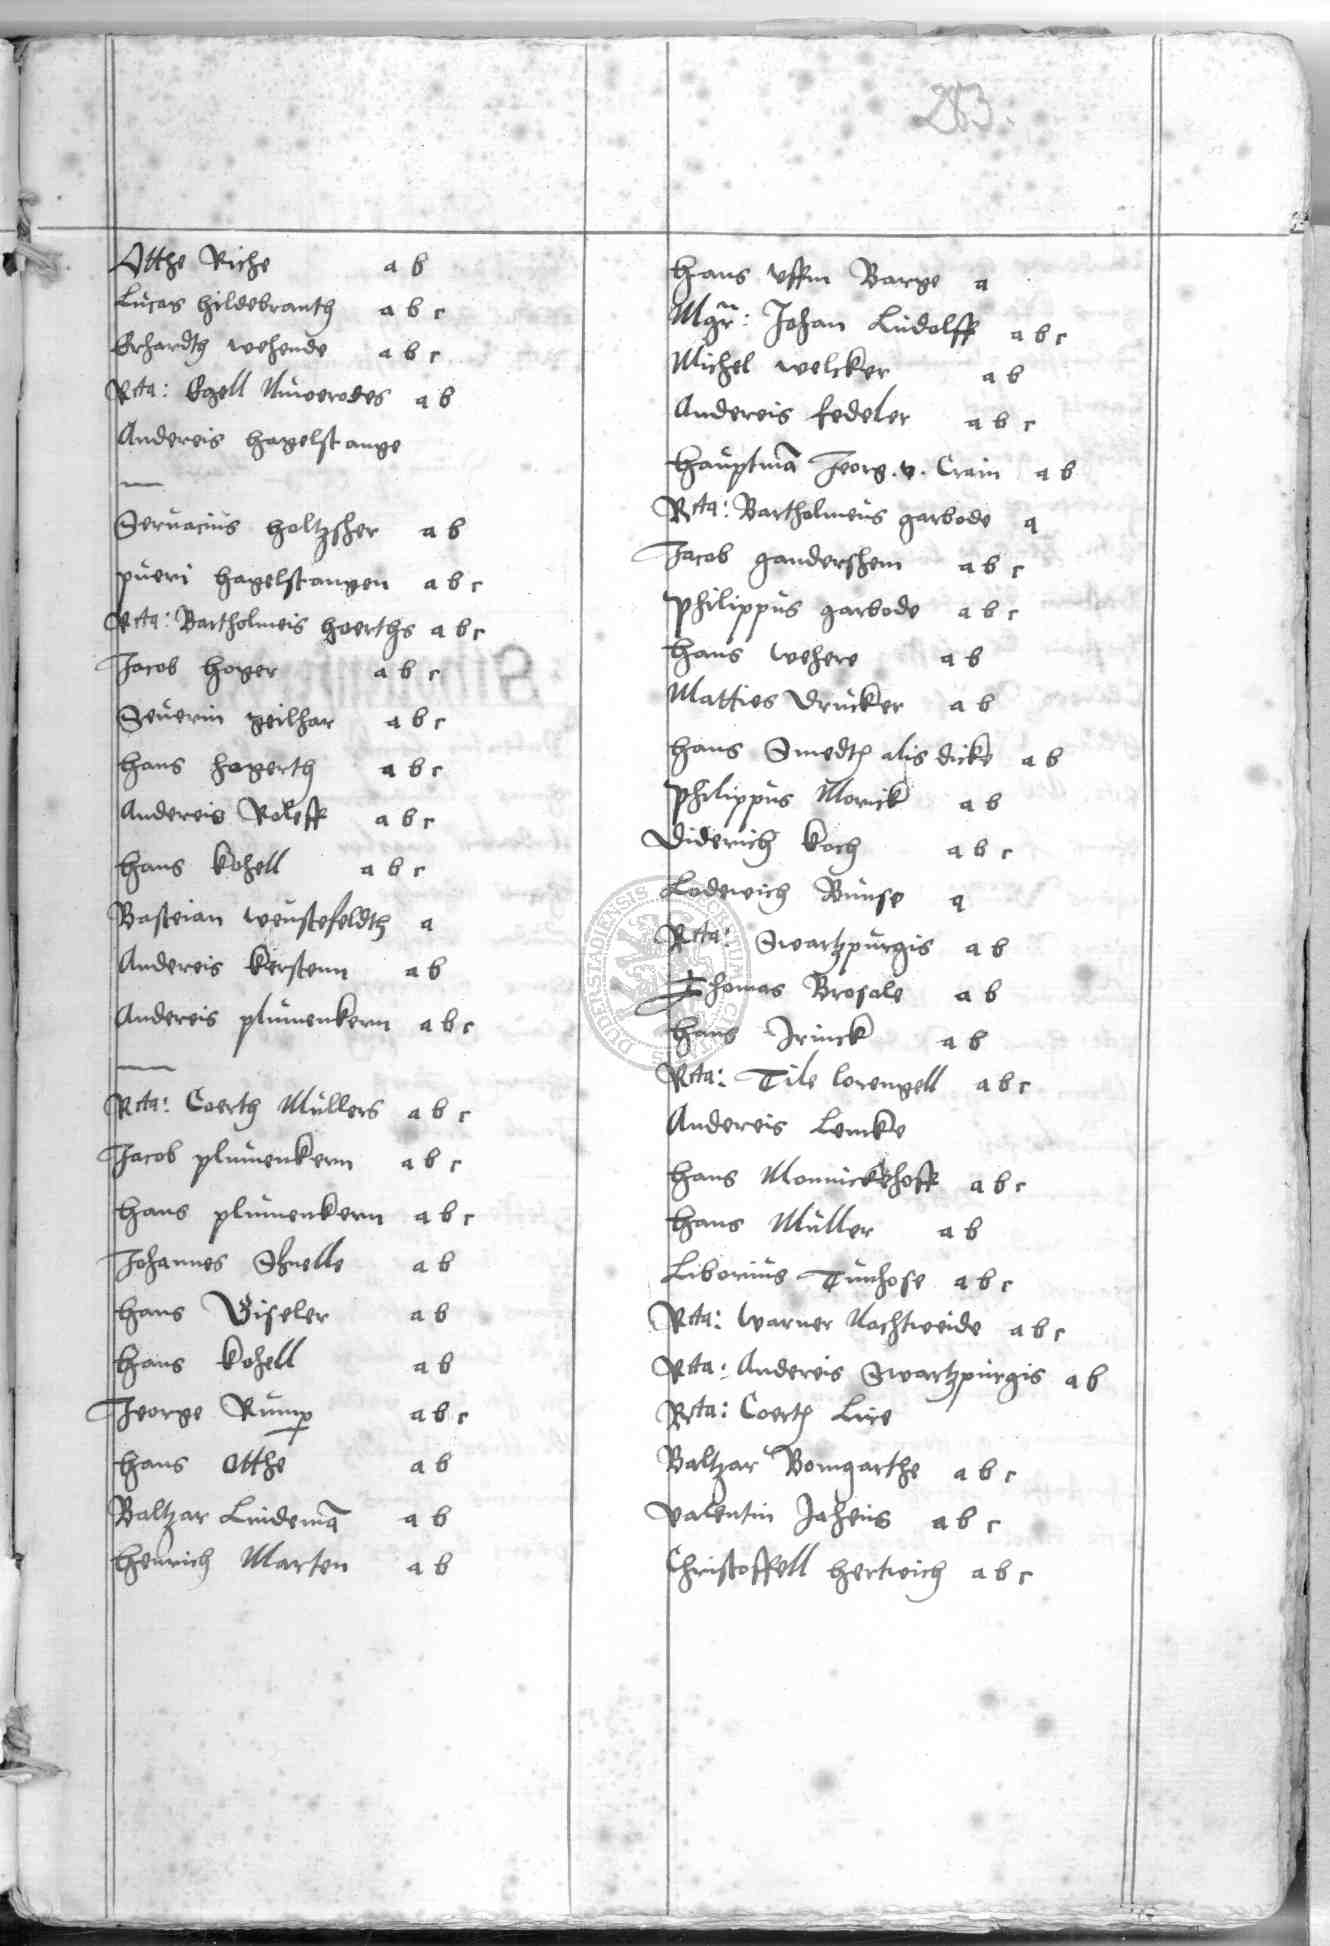 263.
Otthe Riche a b
Lucas Hildebranth a b c
Erhardth Wehende a b c
Rcta: Egell Nuwerodes a b
Andereis Hagelstange
Servacius Holtzsher a b
pueri Hagelstangen a b c
Rcta: Bartholmeis Goerths a b c
Jacob Hoyer a b c
Severin Geilhar a b c
Hans Hogerth a b c
Andereis Roleff a b c
Hans Kohell a b c
Bastian Weustefeldth a
Andereis Kerstenn a b
Andereis Plumenkern a b c
Rcta: Coerth Mullers a b c
Jacob Plumenkern a b c
Hans Plumenkern a b c
Johannes Shnelle a b
Hans Giseler a b
Hans Kohell a b
Jeorge Rump a b c
Hans Otthe a b
Baltzar Lindemā a b
Henrich Marten a b
Hans uffm Barge a
Mgr: Johan Ludolff a b c
Michel Welcker a b
Andereis Fedeler a b c
Hauptmā Jeorg. v. Crain a b
Rcta: Bartholmeus Garbode a
Jacob Gandershem a b c
Philippus Garbode a b c
Hans Wehere a b
Matties Drucker a b
Hans Smedth alis Dicke a b
Philippus Morick a b
Diderich Koch a b c
Lodewich Bunse a
Rcta: Swartzpurgis a b
Thomas Brosale a b
Hans Irinck a b
Rcta: Tile Lorengell a b c
Andereis Lemke
Hans Monnickehoff a b c
Hans Muller a b
Liborius Tunhose a b c
Rcta: Warner Nachtweide a b c
Rcta: Andereis Swartzpurgis a b
Rcta: Coerth Lire
Baltzar Bomgarthe a b c
Valentin Jahens a b c
Christoffell Hertwich a b c